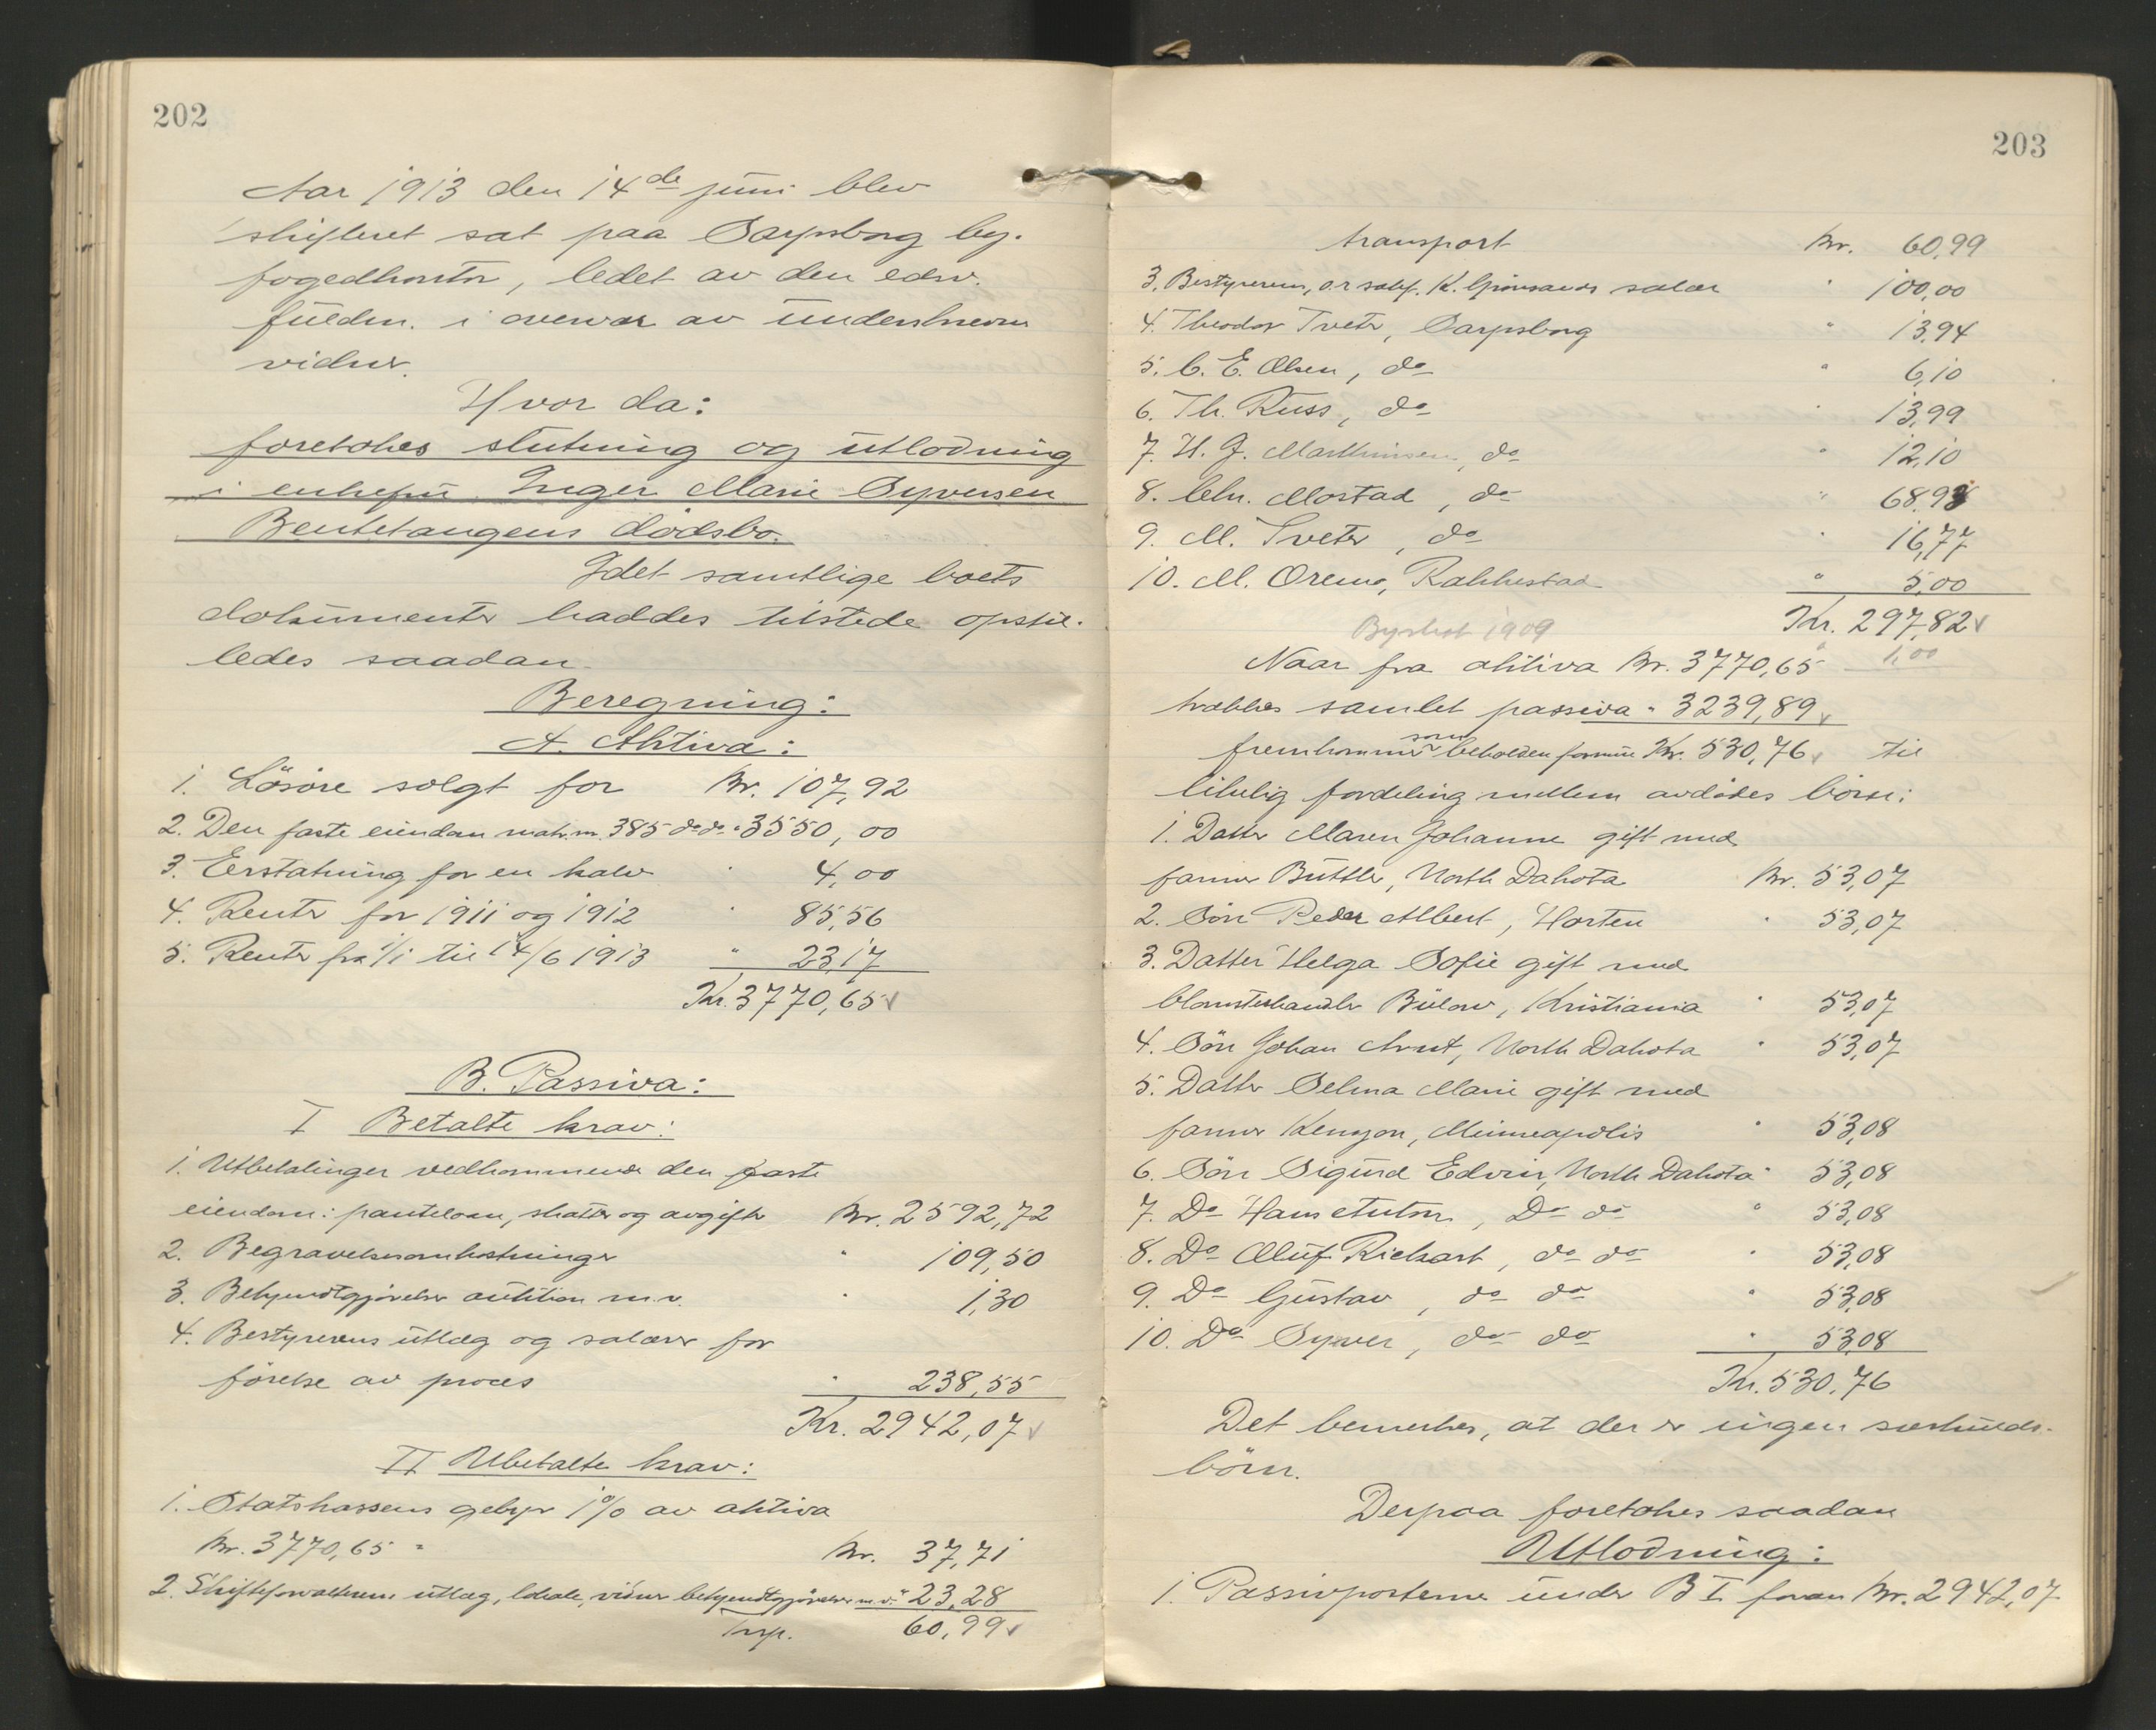 202
Aar 1913 den 14de juni blev
skifteret sat paa Sarpsborg by-
fogedkontor, ledet av den edsv.
fuldm. i overvær av underskrevne
vidner.
Hvor da:
foretokes slutning og utlodning
i enkefru Inger Marie Syversen
Bentetangens dødsbo.
Idet samtlige boets
dokumenter haddes tilstede opstil-
ledes saadan
Beregning:
A. Aktiva:
1. Løsøre solgt for Kr. 107,92
2. Den faste eiendom matr.nr. 385 do do " 3550,00
3. Erstatning for en kalv " 4,00
4. Renter for 1911 og 1912 " 85,56
5. Renter fra 1/1 til 14/6 1913 " 23,17
Kr. 3770,65
B. Passiva:
I Betalte krav:
1. Utbetalinger vedkommende den faste
eiendom: pantelaan, skatter og avgifter Kr. 2592,72
2. Begravelsesomkostninger " 109,50
3. Bekjendtgjørelse auktion m.v. " 1,30
4. Bestyrerens utlæg og salærer for
førelse av proces " 238,55
Kr. 2942,07
II Ubetalte krav:
1. Statskassens gebyr 1% av aktiva
Kr. 3770,65 = Kr. 37,71
2. Skifteforvalterens utlæg, lokale, vidner bekjendtgjørelser m.v. " 23,28
Trsp. 60,99
203
transport Kr. 60,99
3. Bestyrerens, o.r.sakf. K. salær " 100,00
4. Theodor Tveter, Sarpsborg " 13,94
5. C. E. Olsen, do " 6,10
6. Th. Russ, do " 13,99
7. H. J. Marthinsen, do " 12,10
8. Chr. Mostad, do " 68,93
9. M. Tveter, do " 16,77
10. M. Oremo, Rakkestad " 5,00
Kr. 297,82
Byskat 1909 1,00
Naar fra aktiva Kr. 3770,65
trækkes samlet passiva " 3239,89
fremkommer som beholden formue Kr. 530,76 til
likelig fordeling mellem avdødes børn:
1. Datter Maren Johanne gift med
farmer Buttler, North Dakota Kr. 53,07
2. Søn Peder Albert, Horten " 53,07
3. Datter Helga Sofie gift med
blomsterhandler Bülow, Kristiania " 53,07
4. Søn Johan Arnt, North Dakota " 53,07
5. Datter Selma Marie gift med
farmer Kenyon, Minneapolis " 53,08
6. Søn Sigurd Edvin, North Dakota " 53,08
7. Do Hans Anton, Do do " 53,08
8. Do Oluf Rickart, do do " 53,08
9. Do Gustav, do do " 53,08
10. Do Syver, do do " 53,08
Kr. 530,76
Det bemerkes, at der er ingen særkulds-
børn.
Derpaa foretokes saadan
Utlodning:
1. Passivposterne under B I foran Kr. 2942,07